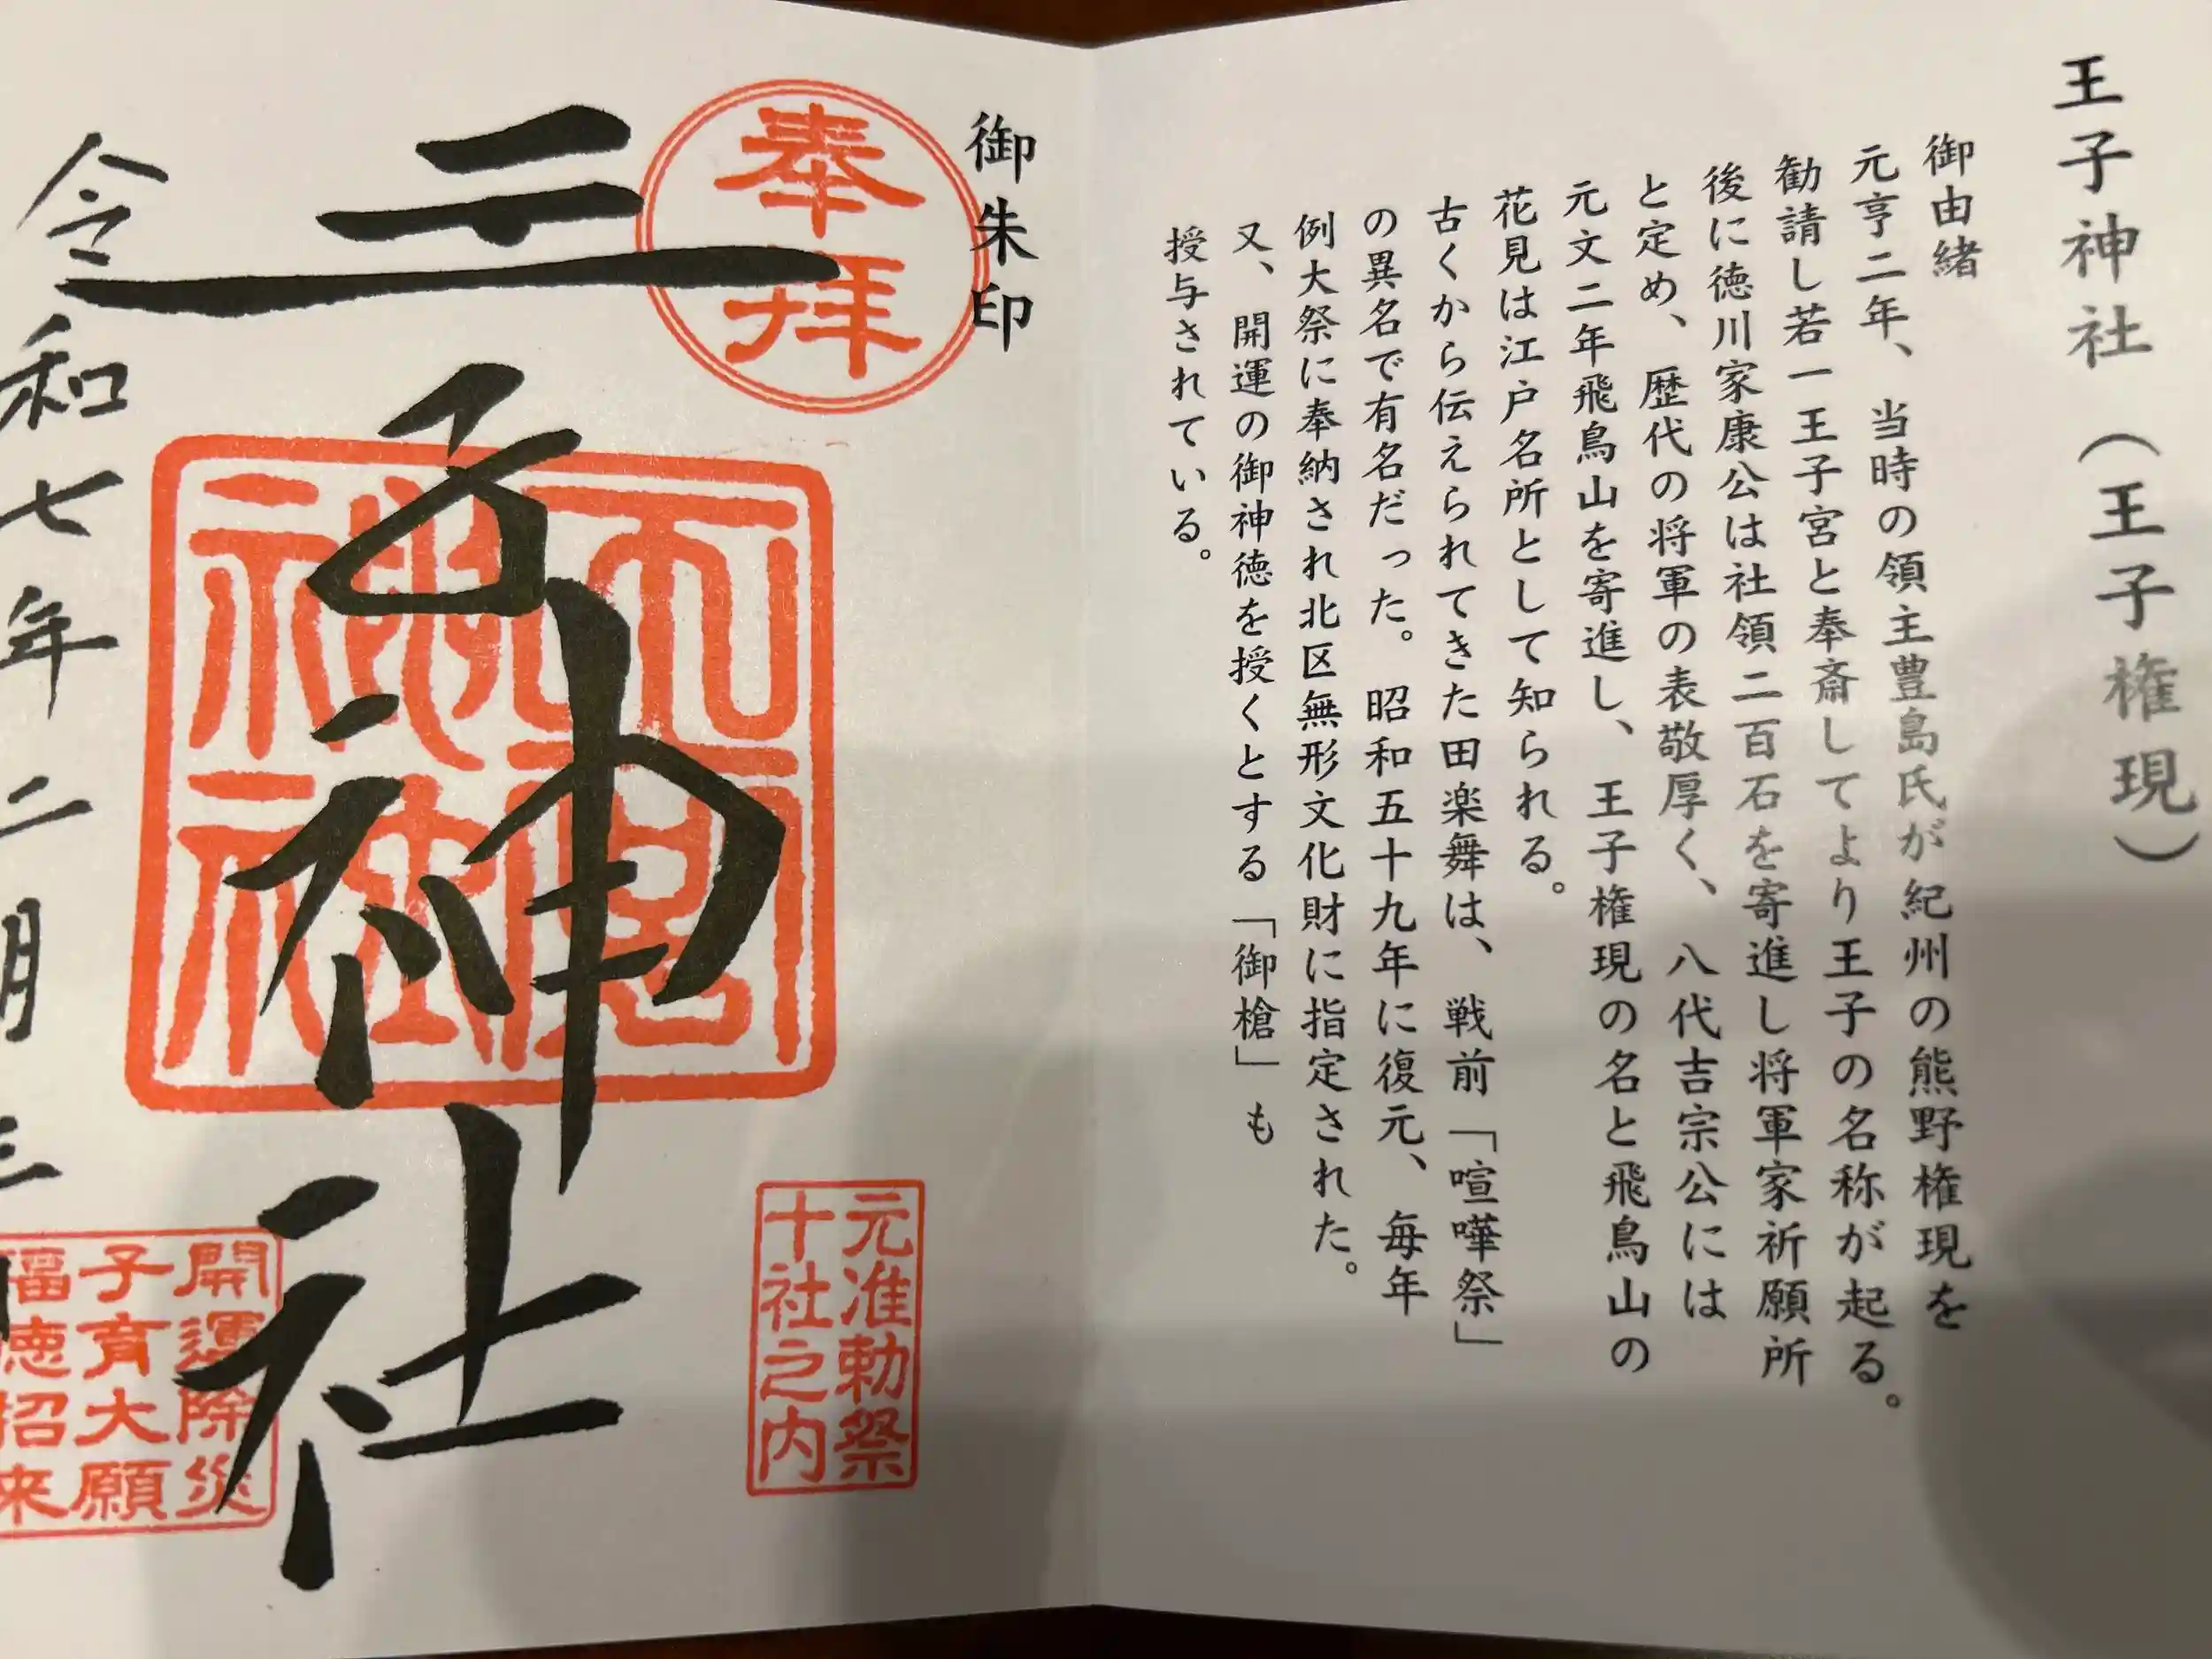 王子神社（王子権現）
御由緒
元亨二年、当時の領主豊島氏が紀州の熊野権現を
勧請し若一王子宮と奉斎してより王子の名称が起る。
後に徳川家康公は社領二百石を寄進し将軍家祈願所
と定め、歴代の将軍の表敬厚く、八代吉宗公には
元文二年飛鳥山を寄進し、王子権現の名と飛鳥山の
花見は江戸名所として知られる。
古くから伝えられてきた田楽舞は、戦前「喧嘩祭」
の異名で有名だった。昭和五十九年に復元、毎年
例大祭に奉納され北区無形文化財に指定された。
又、開運の御神徳を授くとする「御槍」も
授与されている。
御朱印
奉拝
元准勅祭
十社之内
王子神社
令和七年二月三
開運除災
子育大願
福徳招来